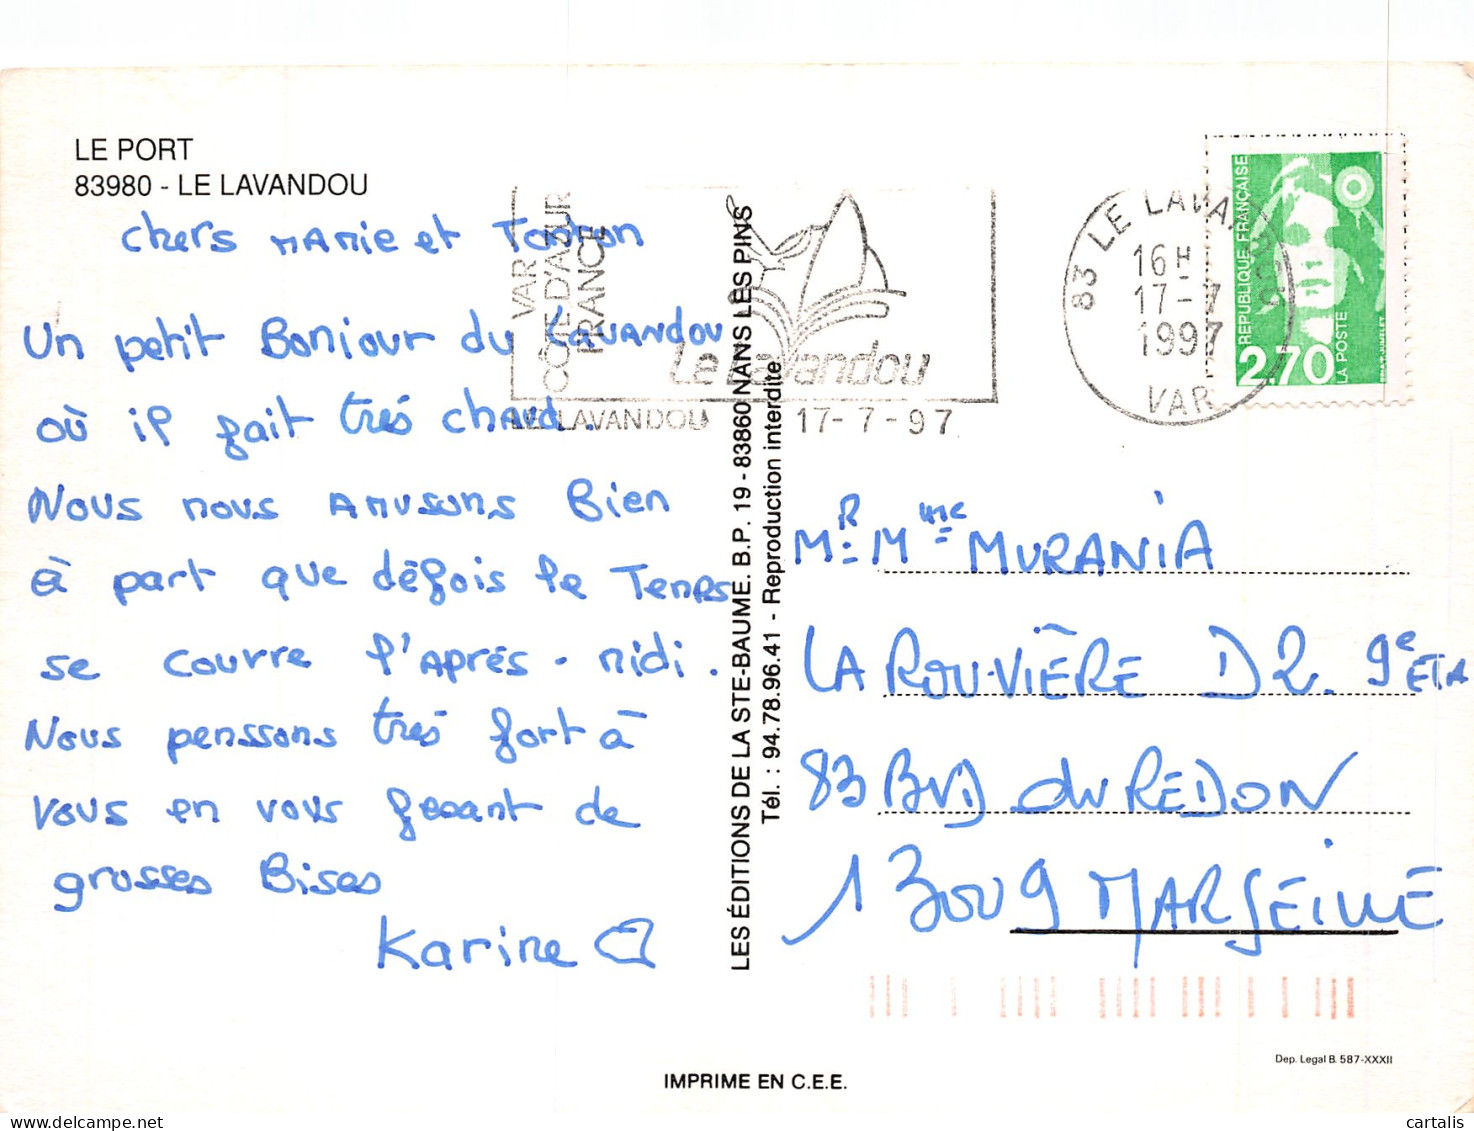 LE PORT
83980 - LE LAVANDOU
chers mamie et Tonton
Un petit Bonjour du Lavandou
où il fait très chaud.
Nous nous Amusons Bien
à part que défois le Temps
se courre l'Après-midi.
Nous penssons très fort à
vous en vous fesant de
grosses Bises
Karine
VAR
CÔTE D'AZUR
FRANCE
Le Lavandou
LE LAVANDOU 17-7-97
83 LE LAVANDOU
16H
17-7
1997
VAR
REPUBLIQUE FRANÇAISE
2,70
LA POSTE
LES ÉDITIONS DE LA STE-BAUME. B.P. 19 - 83860 NANS LES PINS
Tél. : 94.78.96.41 - Reproduction interdite
MR. Mme MURANIA
LA ROUVIÈRE D2. 9e ETA
83 BVD du REDON
13009 MARSEILLE
Dep. Legal B. 587-XXXII
IMPRIME EN C.E.E.
cartalis
delcampe.net